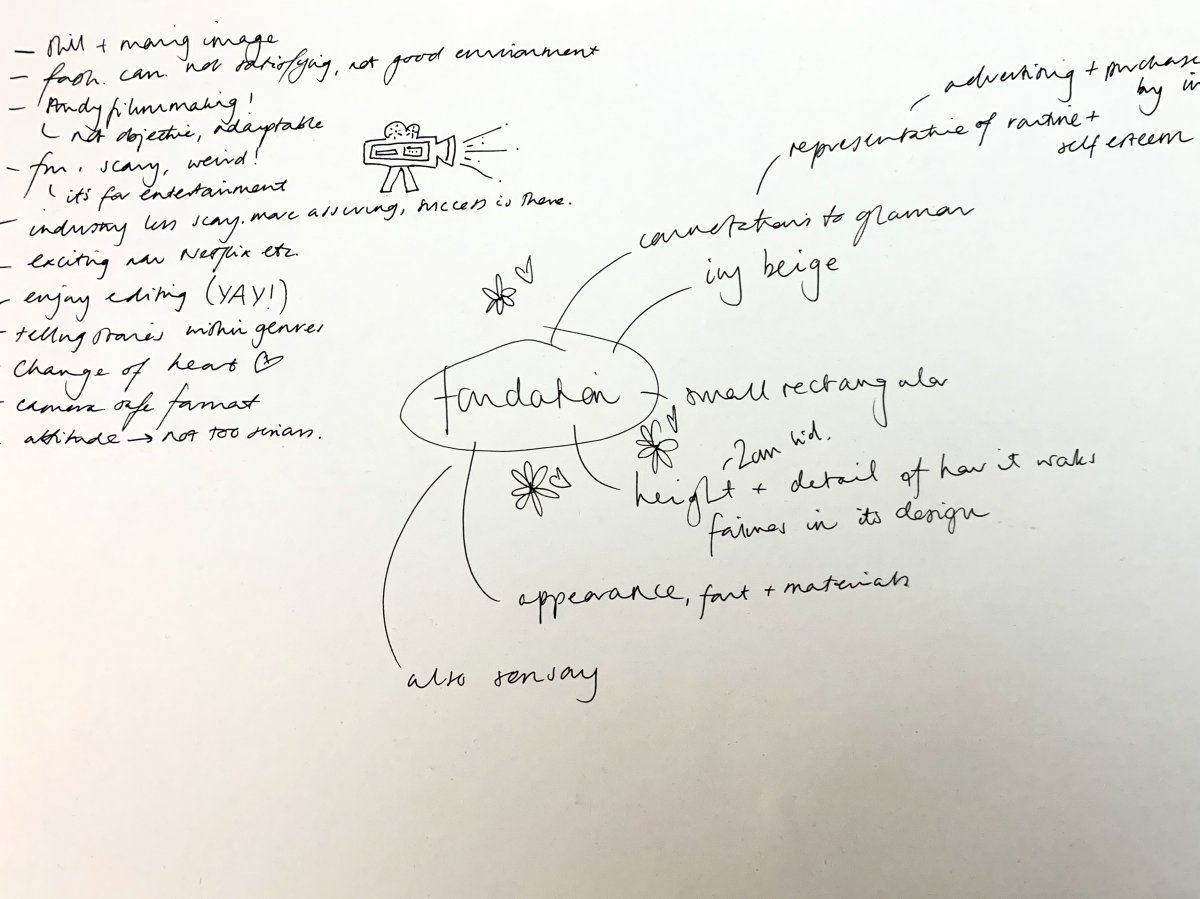 - still + moving image
- fash. com. not satisfying, not good environment
- Andy filmmaking!
not objective, adaptable
- fun, scary, weird!
it's for entertainment
- industry less scary. more assuring, success is there.
- exciting now Netflix etc.
- enjoy editing (YAY!)
- telling stories within genres
- change of heart
- camera safe format
- attitude → not too serious.
advertising + purchase
by
representative of routine +
self esteem
connotations to glamour
ivory beige
foundation
small rectangular
2cm wid.
height + detail of how it works
fairness in its design
appearance, font + materials
also sensory